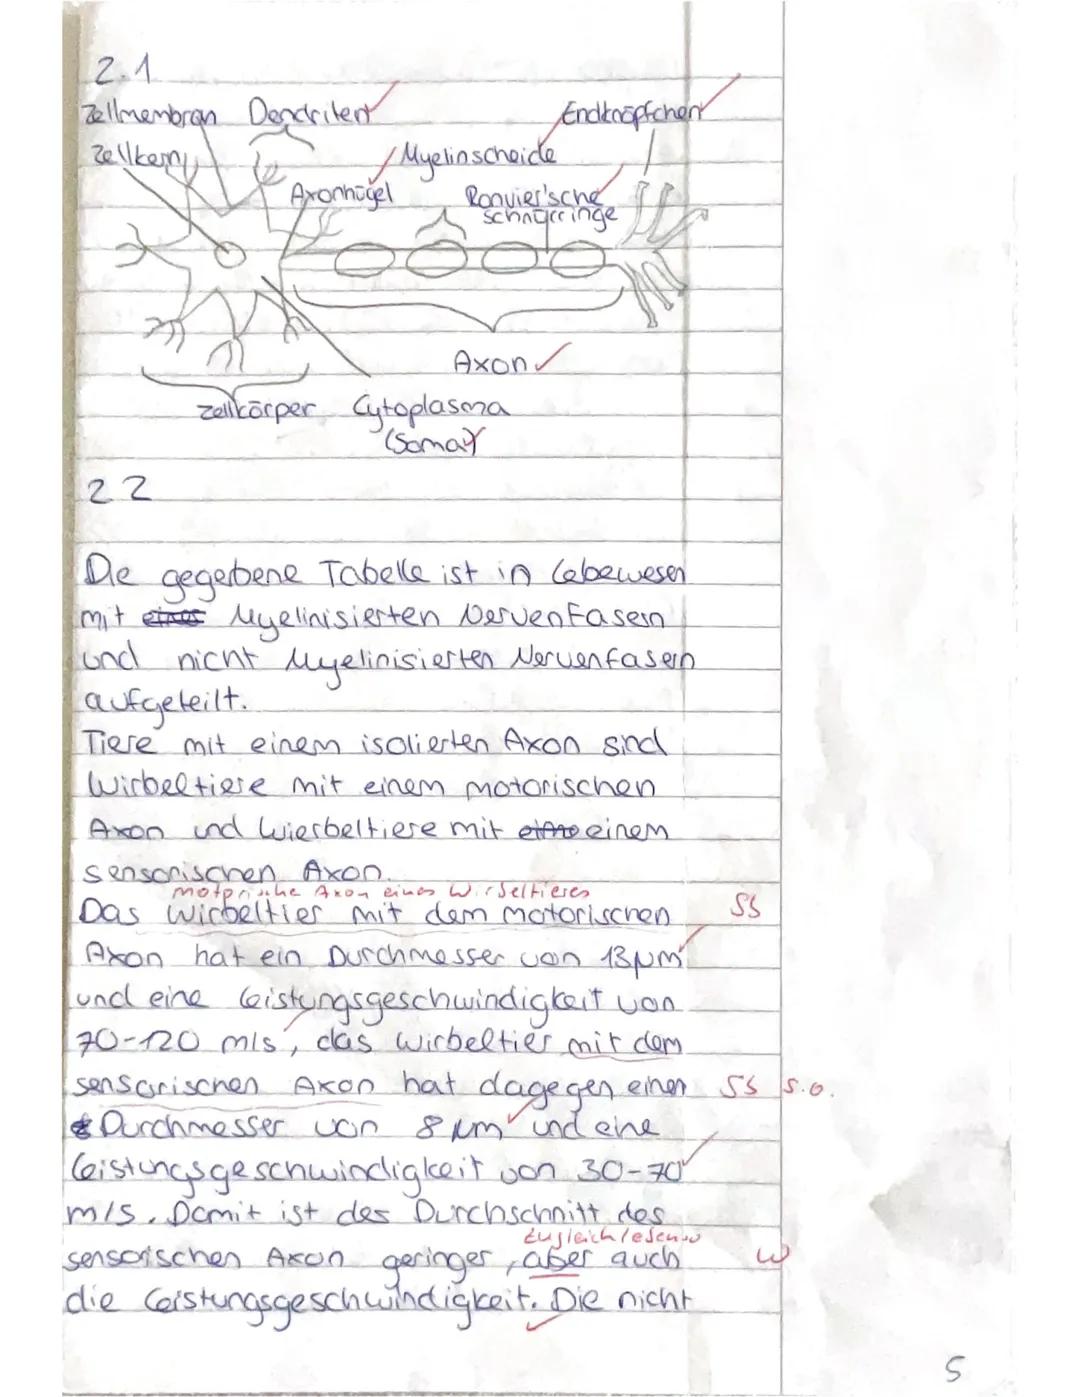 2.1
Zellmembran Dendriten Endknöpfchen
Zellkern Myelinscheide
Axonhügel Ranvier'sche
schnürringe
Axon
Zellkörper Cytoplasma
(Soma)
2.2
Die gegebene Tabelle ist in Lebewesen
mit eines Myelinisierten Nervenfasern
und nicht Myelinisierten Nervenfasern
aufgeteilt.
Tiere mit einem isolierten Axon sind
Wirbeltiere mit einem motorischen
Axon und Wierbeltiere mit einem
sensorischen Axon.
motorische Axon eines Wirbeltieres
Das Wirbeltier mit dem motorischen SS
Axon hat ein Durchmesser von 13µm
und eine Leistungsgeschwindigkeit von
70-120 m/s, das Wirbeltier mit dem
sensorischen Axon hat dagegen einen SS s.o.
Durchmesser von 8 µm und eine
Leistungsgeschwindigkeit von 30-70
m/s. Damit ist des Durchschnitt des
zugleich/ebenso
sensorischen Axon geringer, aber auch W
die Leistungsgeschwindigkeit. Die nicht
5